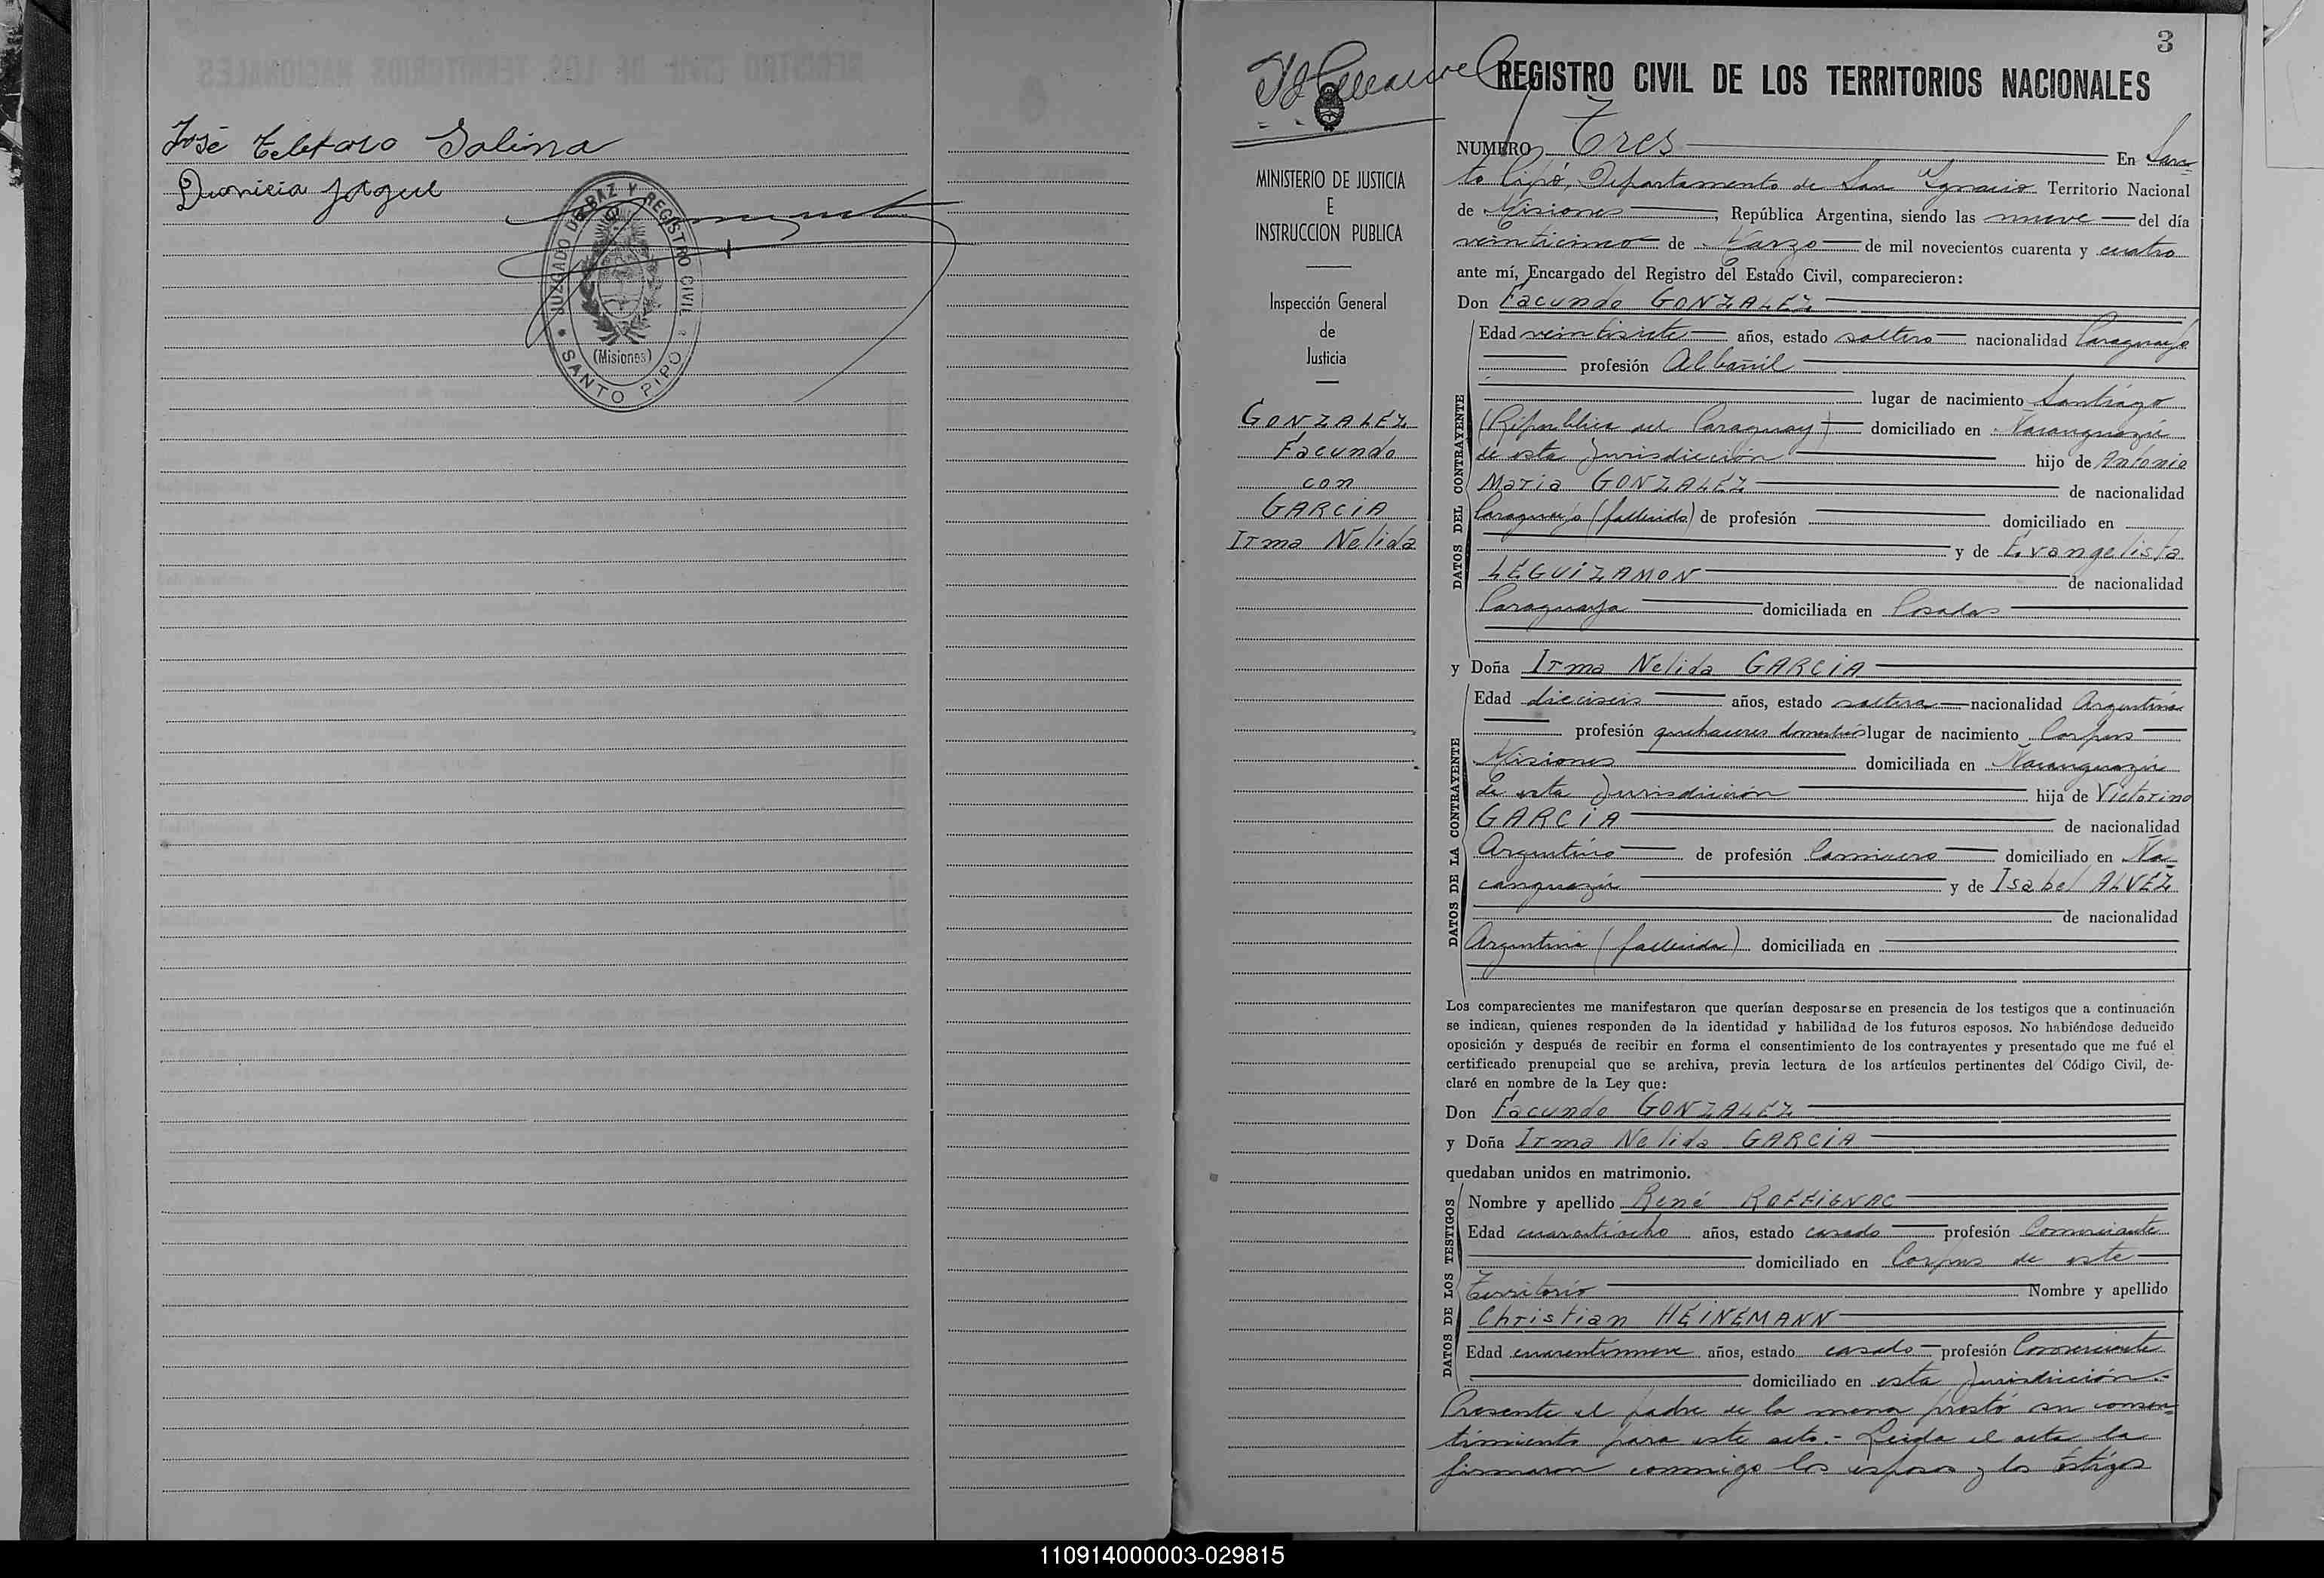 José Celestano Salina
Dionicia
JUZGADO DE PAZ Y REGISTRO CIVIL
(Misiones)
SANTO PIPO
3
REGISTRO CIVIL DE LOS TERRITORIOS NACIONALES
MINISTERIO DE JUSTICIA
E
INSTRUCCION PUBLICA
Inspección General
de
Justicia
GONZALEZ
Facundo
con
GARCIA
Irma Nelida
NUMERO Tres En San-
to Pipó, Departamento de San Ygnacio Territorio Nacional
de Misiones, República Argentina, siendo las nueve del día
veinticinco de Marzo de mil novecientos cuarenta y cuatro
ante mí, Encargado del Registro del Estado Civil, comparecieron:
Don Facundo GONZALEZ
DATOS DEL CONTRAYENTE
Edad veintisiete años, estado soltero nacionalidad Paraguayo
profesión Albañil
lugar de nacimiento Santiago
(República del Paraguay) domiciliado en Ñacanguazú
de esta Jurisdicción hijo de Antonio
Maria GONZALEZ de nacionalidad
Paraguayo (fallecido) de profesión domiciliado en
y de Evangelista
LEGUIZAMON de nacionalidad
Paraguaya domiciliada en Posadas
y Doña Irma Nelida GARCIA
DATOS DE LA CONTRAYENTE
Edad dieciseis años, estado soltera nacionalidad Argentina
profesión quehaceres domésticos lugar de nacimiento Corpus
Misiones domiciliada en Ñacanguazú
de esta Jurisdicción hija de Victorino
GARCIA de nacionalidad
Argentino de profesión domiciliado en Ña-
canguazú y de Isabel ALVEZ
de nacionalidad
Argentina (fallecida) domiciliada en
Los comparecientes me manifestaron que querían desposarse en presencia de los testigos que a continuación
se indican, quienes responden de la identidad y habilidad de los futuros esposos. No habiéndose deducido
oposición y después de recibir en forma el consentimiento de los contrayentes y presentado que me fué el
certificado prenupcial que se archiva, previa lectura de los artículos pertinentes del Código Civil, de-
claré en nombre de la Ley que:
Don Facundo GONZALEZ
y Doña Irma Nelida GARCIA
quedaban unidos en matrimonio.
DATOS DE LOS TESTIGOS
Nombre y apellido René ROFFIGNAC
Edad cuarentiocho años, estado casado profesión Comerciante
domiciliado en Corpus de este
Territorio Nombre y apellido
Christian HEINEMANN
Edad cuarentinueve años, estado casado profesión Comerciante
domiciliado en esta Jurisdicción.-
Presente el padre de la menor prestó su consen-
timiento para este acto.- Leida el acta la
firmaron conmigo los esposos y los testigos
110914000003-029815